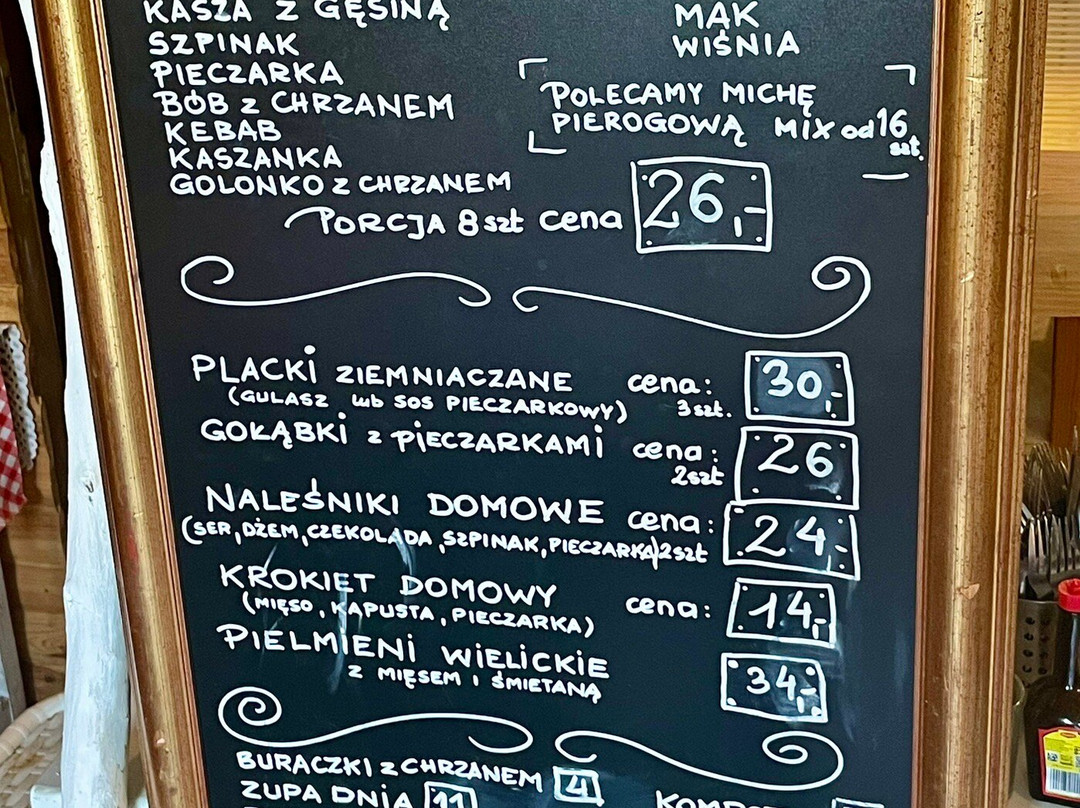 KASZA Z GĘSINĄ
SZPINAK
PIECZARKA
BÓB Z CHRZANEM
KEBAB
KASZANKA
GOLONKO Z CHRZANEM
MAK
WIŚNIA
POLECAMY MICHĘ
PIEROGOWĄ MIX od 16
szt.
PORCJA 8 szt cena 26,-
PLACKI ZIEMNIACZANE cena: 30,-
(GULASZ lub SOS PIECZARKOWY) 3szt.
GOŁĄBKI Z PIECZARKAMI cena: 26
2szt
NALEŚNIKI DOMOWE cena: 24,-
(SER, DŻEM, CZEKOLADA, SZPINAK, PIECZARKA) 2szt
KROKIET DOMOWY cena: 14,-
(MIĘSO, KAPUSTA, PIECZARKA)
PIELMIENI WIELICKIE 34,-
Z MIĘSEM I ŚMIETANĄ
BURACZKI Z CHRZANEM 4
ZUPA DNIA 11